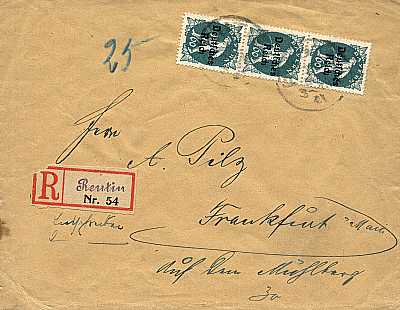 25
Deutsches Reich
Deutsches Reich
Deutsches Reich
Herrn
A. Pilz
R Reutin
Nr. 54
Einschreiben
Frankfurt a/Main
Auf dem Mühlberg
30